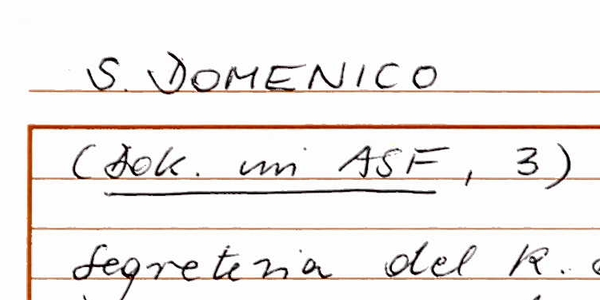 S. DOMENICO
(Dok. im ASF, 3)
Segreteria del R.